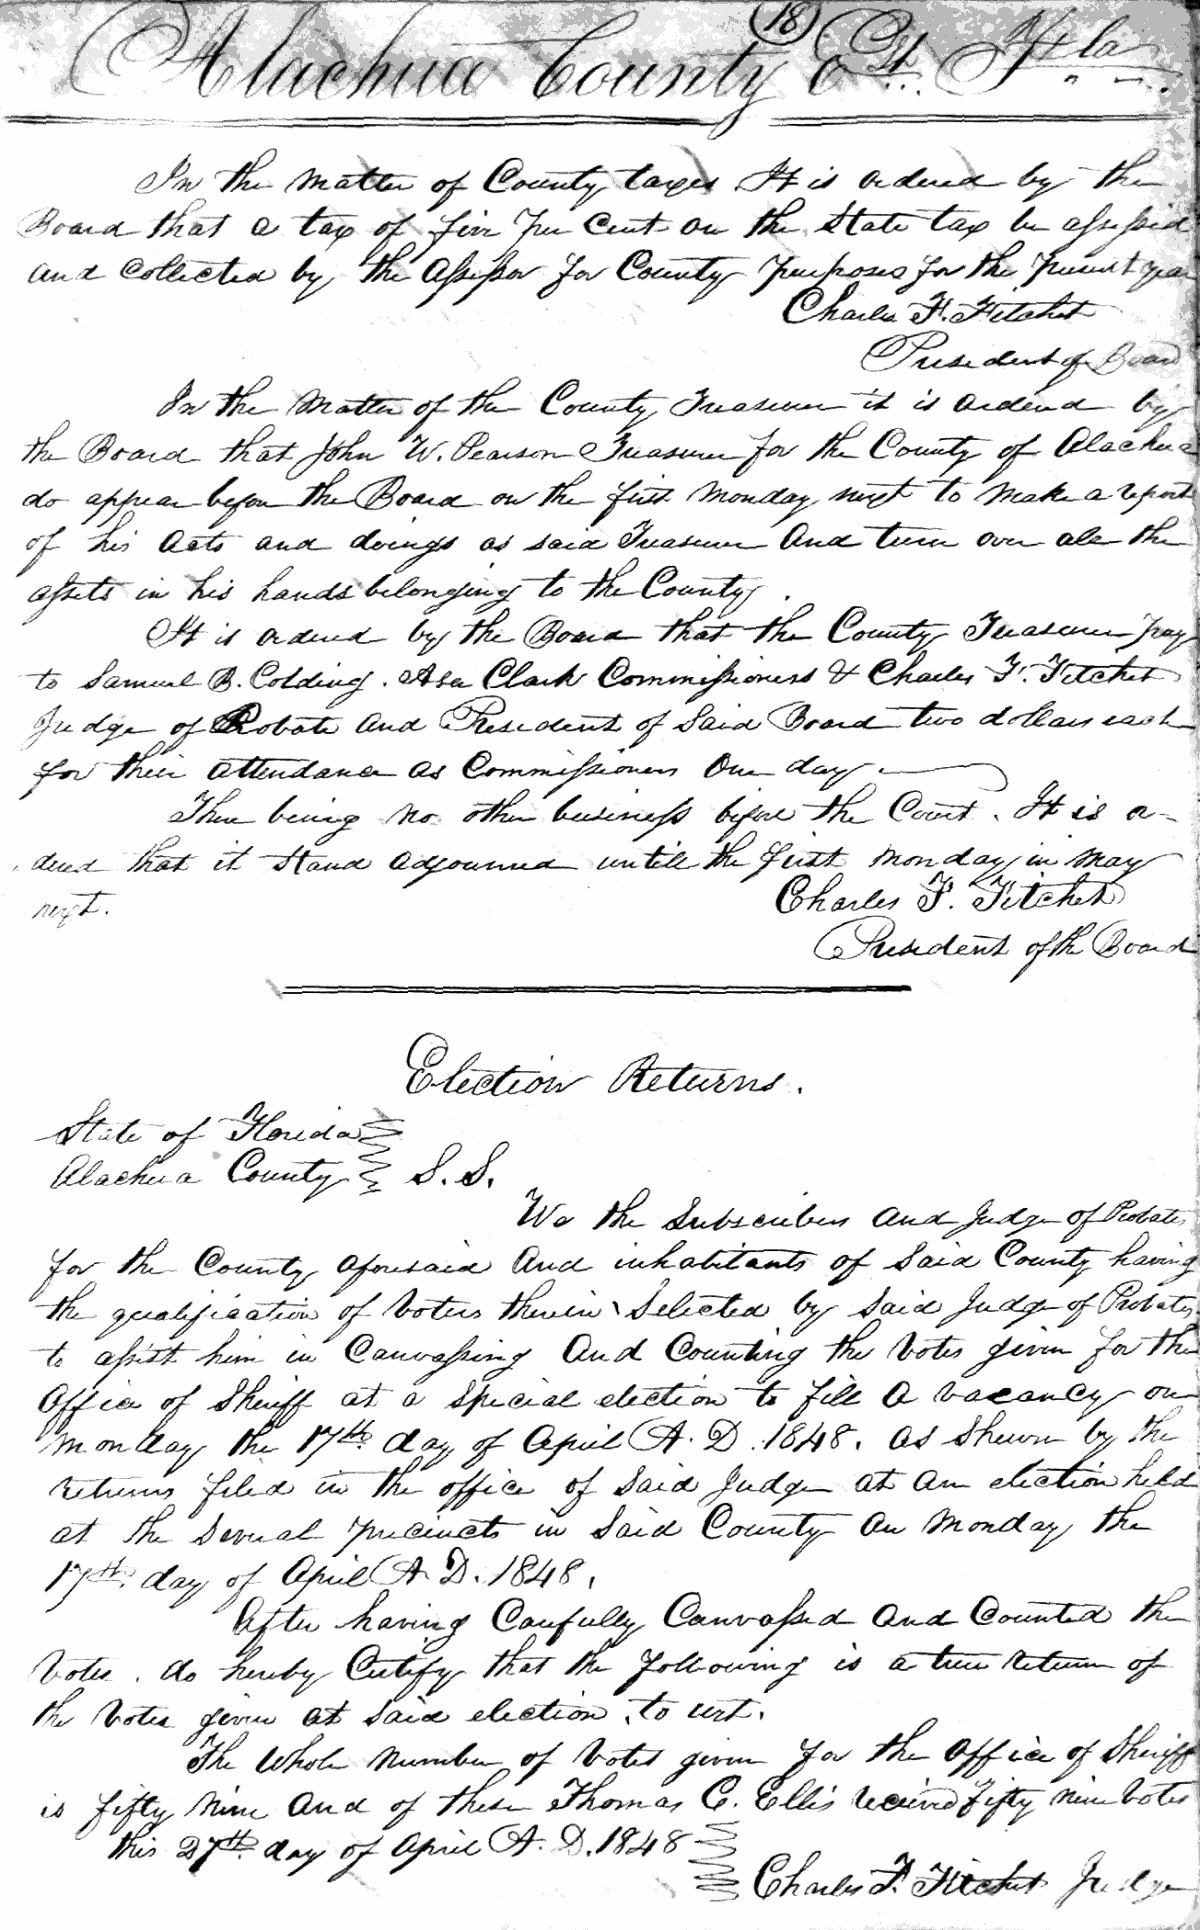 18
Alachua County Ct. Fla
In the Matter of County taxes It is ordered by the
Board that a tax of five per Cent on the State tax be assessed
and Collected by the Assessor for County purposes for the present year
Charles F. Fitchet
President of Board
In the Matter of the County Treasurer it is ordered by
the Board that John W. Pearson Treasurer for the County of Alachua
do appear before the Board on the first Monday next to Make a report
of his Acts and doings as said Treasurer And turn over all the
assets in his hands belonging to the County.
It is ordered by the Board that the County Treasurer pay
to Samuel B. Colding. Asa Clark Commissioners & Charles F. Fitchet
Judge of Probate and President of Said Board two dollars each
for their attendance as Commissioners One day
There being no other business before the Court. It is or-
dered that it Stand Adjourned untill the first Monday in May
next.
Charles F. Fitchet
President of the Board
Election Returns.
State of Florida
Alachua County S.S.
We the Subscribers and Judge of Probate
for the County aforesaid And inhabitants of Said County having
the qualification of Voters therein Selected by Said Judge of Probate,
to assist him in Canvassing And Counting the Votes given for the
Office of Sheriff at a Special election to fill a vacancy on
Monday the 17th day of April A.D. 1848. as Shewn by the
returns filed in the office of Said Judge at an election held
at the Several precincts in Said County on Monday the
17th day of April A.D. 1848,
After having Carefully Canvassed and Counted the
Votes. do hereby Certify that the following is a true return of
the Votes given at Said election, to wit.
The Whole Number of Votes given for the Office of Sheriff
is fifty Nine And of these Thomas C. Ellis received Fifty nine Votes
this 27th day of April A.D. 1848
Charles F. Fitchet Judge